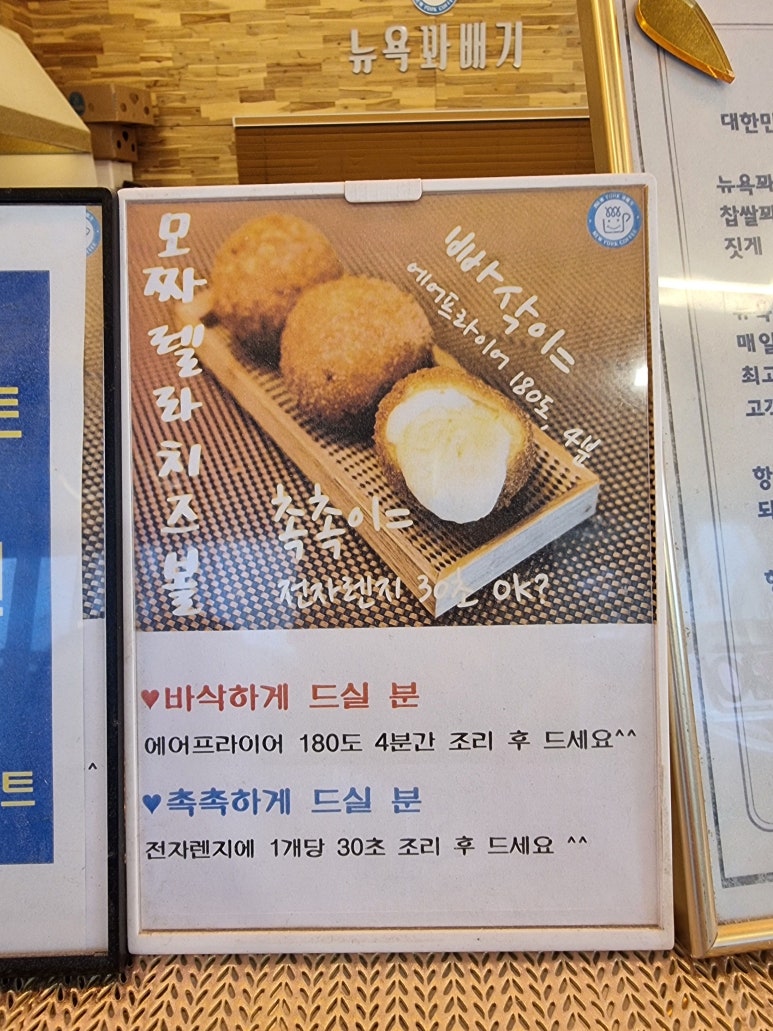 뉴욕꽈배기
모짜렐라치즈볼
빠삭이는
에어프라이어 180도, 4분
촉촉이는
전자렌지 30초 OK?
♥바삭하게 드실 분
에어프라이어 180도 4분간 조리 후 드세요^^
♥촉촉하게 드실 분
전자렌지에 1개당 30초 조리 후 드세요 ^^
NEW YORK COFFEE
트
트
^
대한민
뉴욕꽈
찹쌀꽈
짓게
매일
최고
고개
항
되